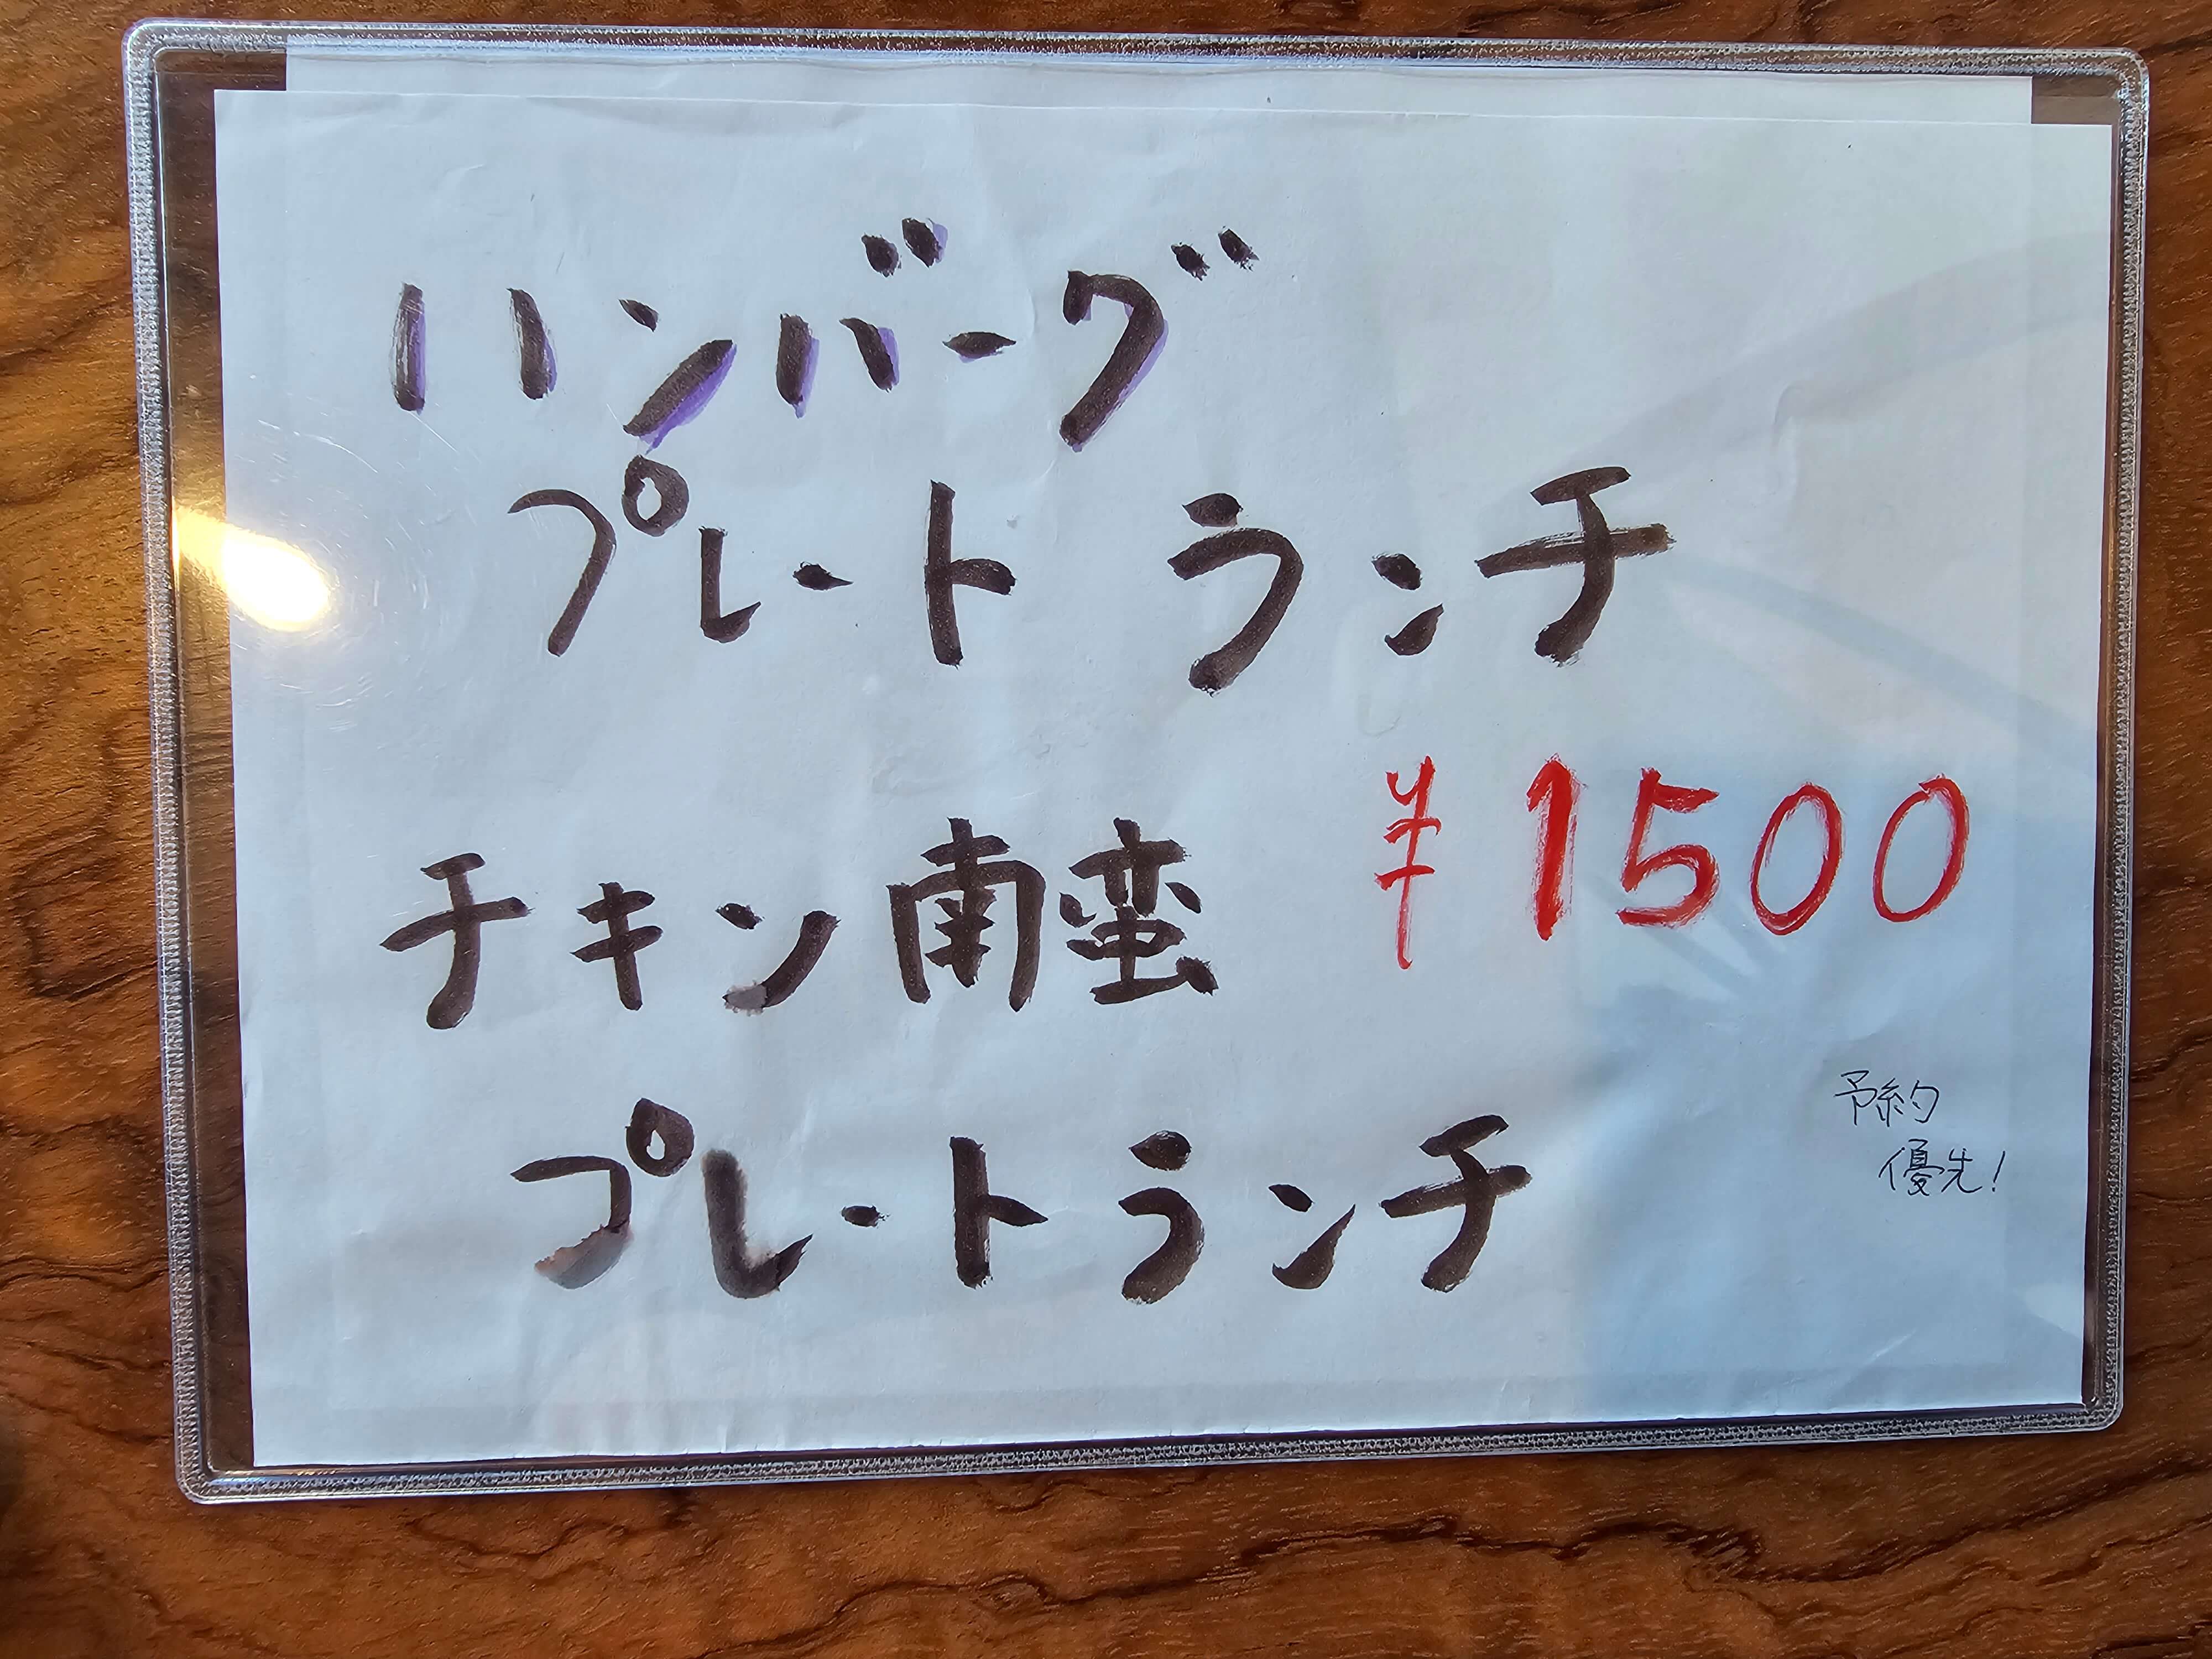 ハンバーグ
プレート ランチ
¥1500
チキン南蛮
プレートランチ
予約
優先!